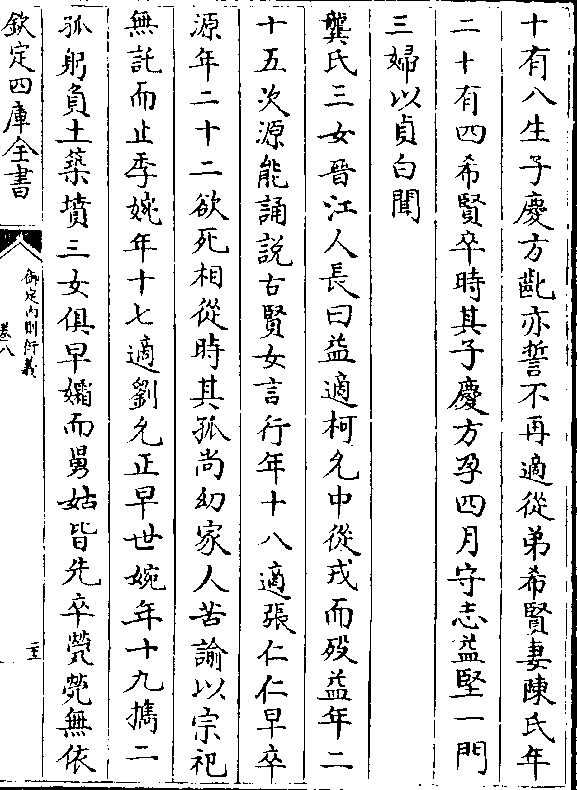 十有八生子慶方齔亦誓不再適從弟希賢妻陳氏年
二十有四希賢卒時其子慶方孕四月守志益堅一門
三婦以貞白聞
龔氏三女晉江人長曰益適柯允中從戎而歿益年二
十五次源能誦説古賢女言行年十八適張仁仁早卒
源年二十二欲死相從時其孤尚幼家人苦諭以宗祀
無託而止季婉年十七適劉允正早世婉年十九攜二
孤躬負土築墳三女俱早孀而舅姑皆先卒煢煢無依
欽定四庫全書
御定內則衍義
卷八